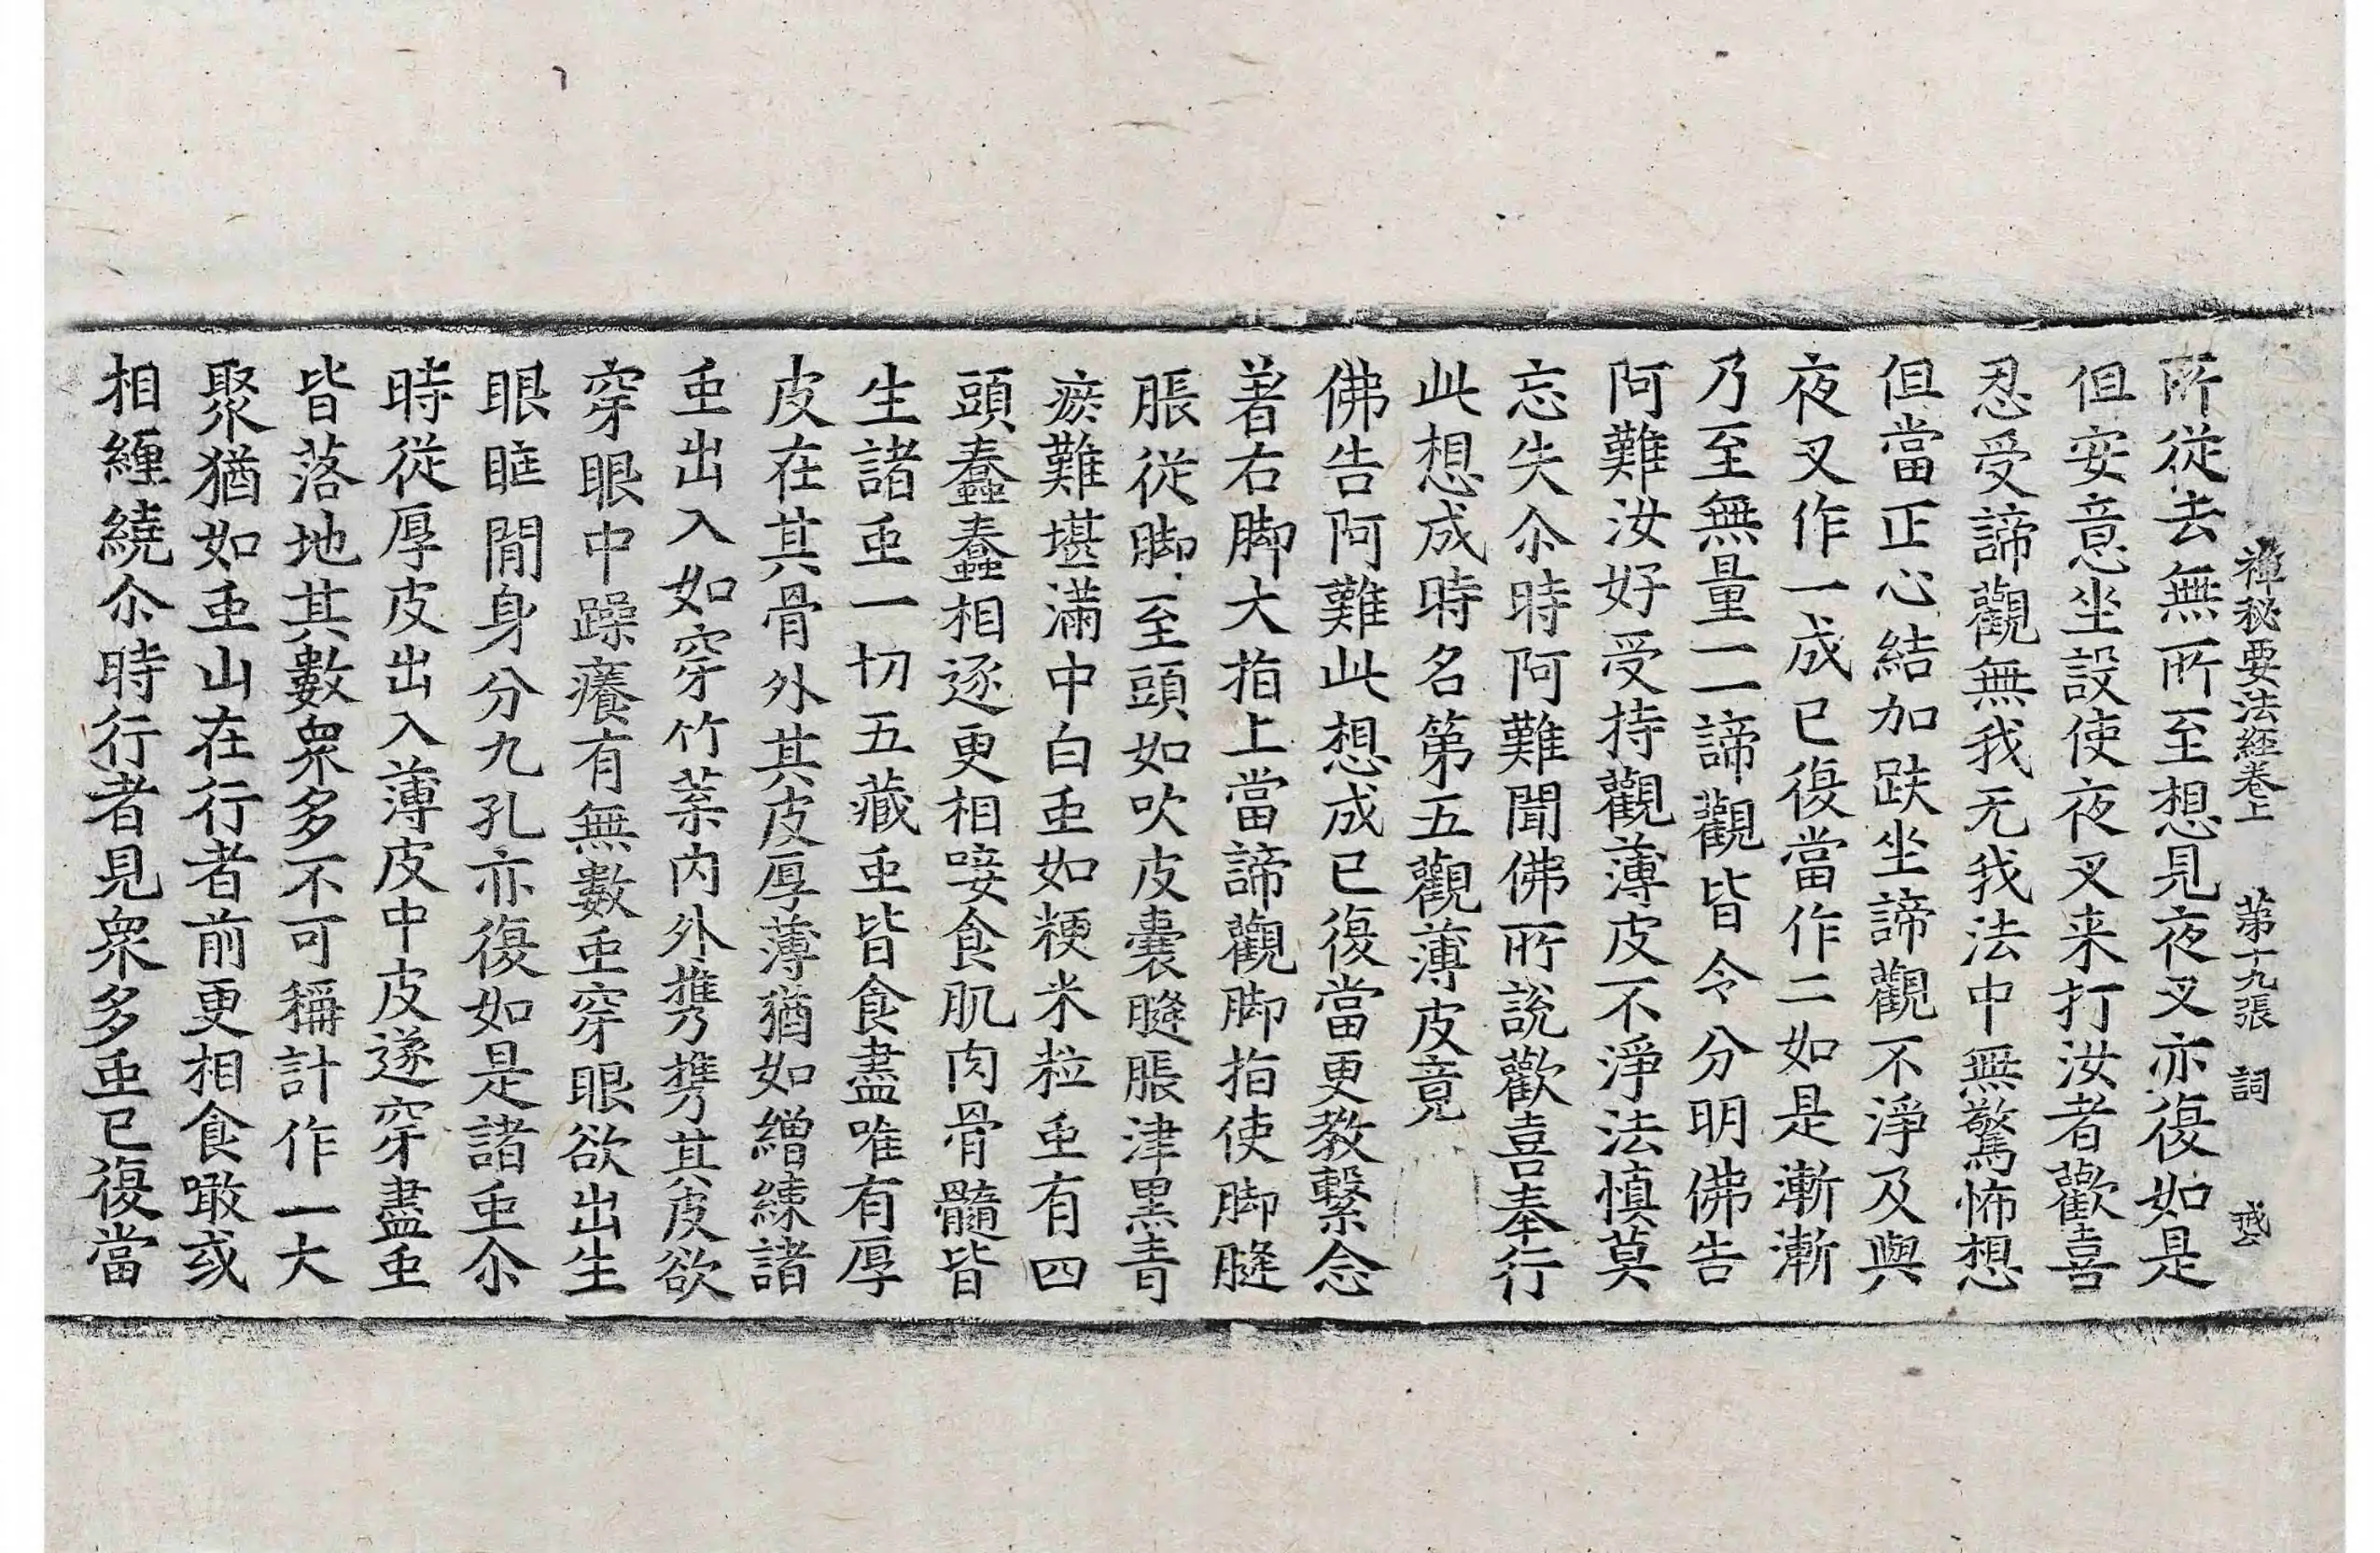 禪秘要法經卷上 第十九張 詞
所從去無所至想見夜叉亦復如是
但安意坐設使夜叉来打汝者歡喜
忍受諦觀無我无我法中無驚怖想
但當正心結加趺坐諦觀不淨及與
夜叉作一成已復當作二如是漸漸
乃至無量一一諦觀皆令分明佛告
阿難汝好受持觀薄皮不淨法慎莫
忘失尒時阿難聞佛所說歡喜奉行
此想成時名第五觀薄皮竟
佛告阿難此想成已復當更教繫念
著右脚大指上當諦觀脚指使脚膖
脹從脚至頭如吹皮囊膖脹津黑青
瘀難堪滿中白䖝如粳米粒䖝有四
頭蠢蠢相逐更相唼食肌肉骨髓皆
生諸䖝一切五藏䖝皆食盡唯有厚
皮在其骨外其皮厚薄猶如繒練諸
䖝出入如穿竹葉内外㩦㩦其皮欲
穿眼中躁癢有無數䖝穿眼欲出生
眼眶閒身分九孔亦復如是諸䖝尒
時從厚皮出入薄皮中皮遂穿盡䖝
皆落地其數衆多不可稱計作一大
聚猶如䖝山在行者前更相食噉或
相纏繞尒時行者見衆多䖝已復當